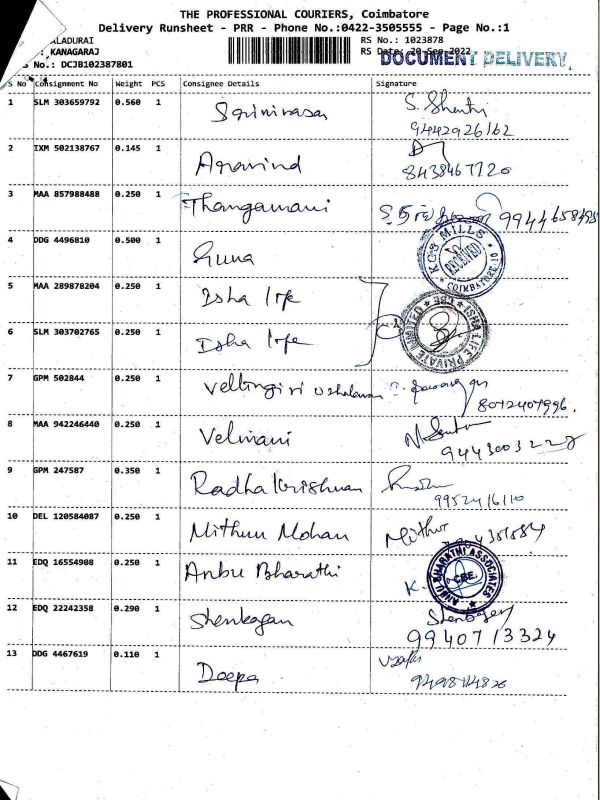 THE PROFESSIONAL COURIERS, Coimbatore
Delivery Runsheet - PRR - Phone No.:0422-3505555 - Page No.:1
ALADURAI RS No.: 1023878
: KANAGARAJ RS Date: 20-Sep-2022
DOCUMENT DELIVERY
No.: DCJB102387801
S No Consignment No Weight PCS Consignee Details Signature
1 SLM 303659792 0.560 1 Srinivasa
9442926162
2 IXM 502138767 0.145 1 Aravind
8438467720
3 MAA 857988488 0.250 1 Thangamani
4 DDG 4496810 0.500 1 Guna
K.G.S MILLS RECEIVED COIMBATORE
5 MAA 289878204 0.250 1 Isha life
ISHA LIFE PRIVATE LIMITED CBE
6 SLM 303702765 0.250 1 Isha life
7 GPM 502844 0.250 1 Vellingiri
8072407996.
8 MAA 942246440 0.250 1 Velmani
9443003228
9 GPM 247587 0.350 1 Radha Krishnan
9952416110
10 DEL 120584087 0.250 1 Mithun Mohan Mithun
11 EDQ 16554908 0.250 1 Anbu Bharathi K.
ANBU BHARATHI ASSOCIATES CBE.
12 EDQ 22242358 0.290 1 Shenbagan
9940713324
13 DDG 4467619 0.110 1 Deepa